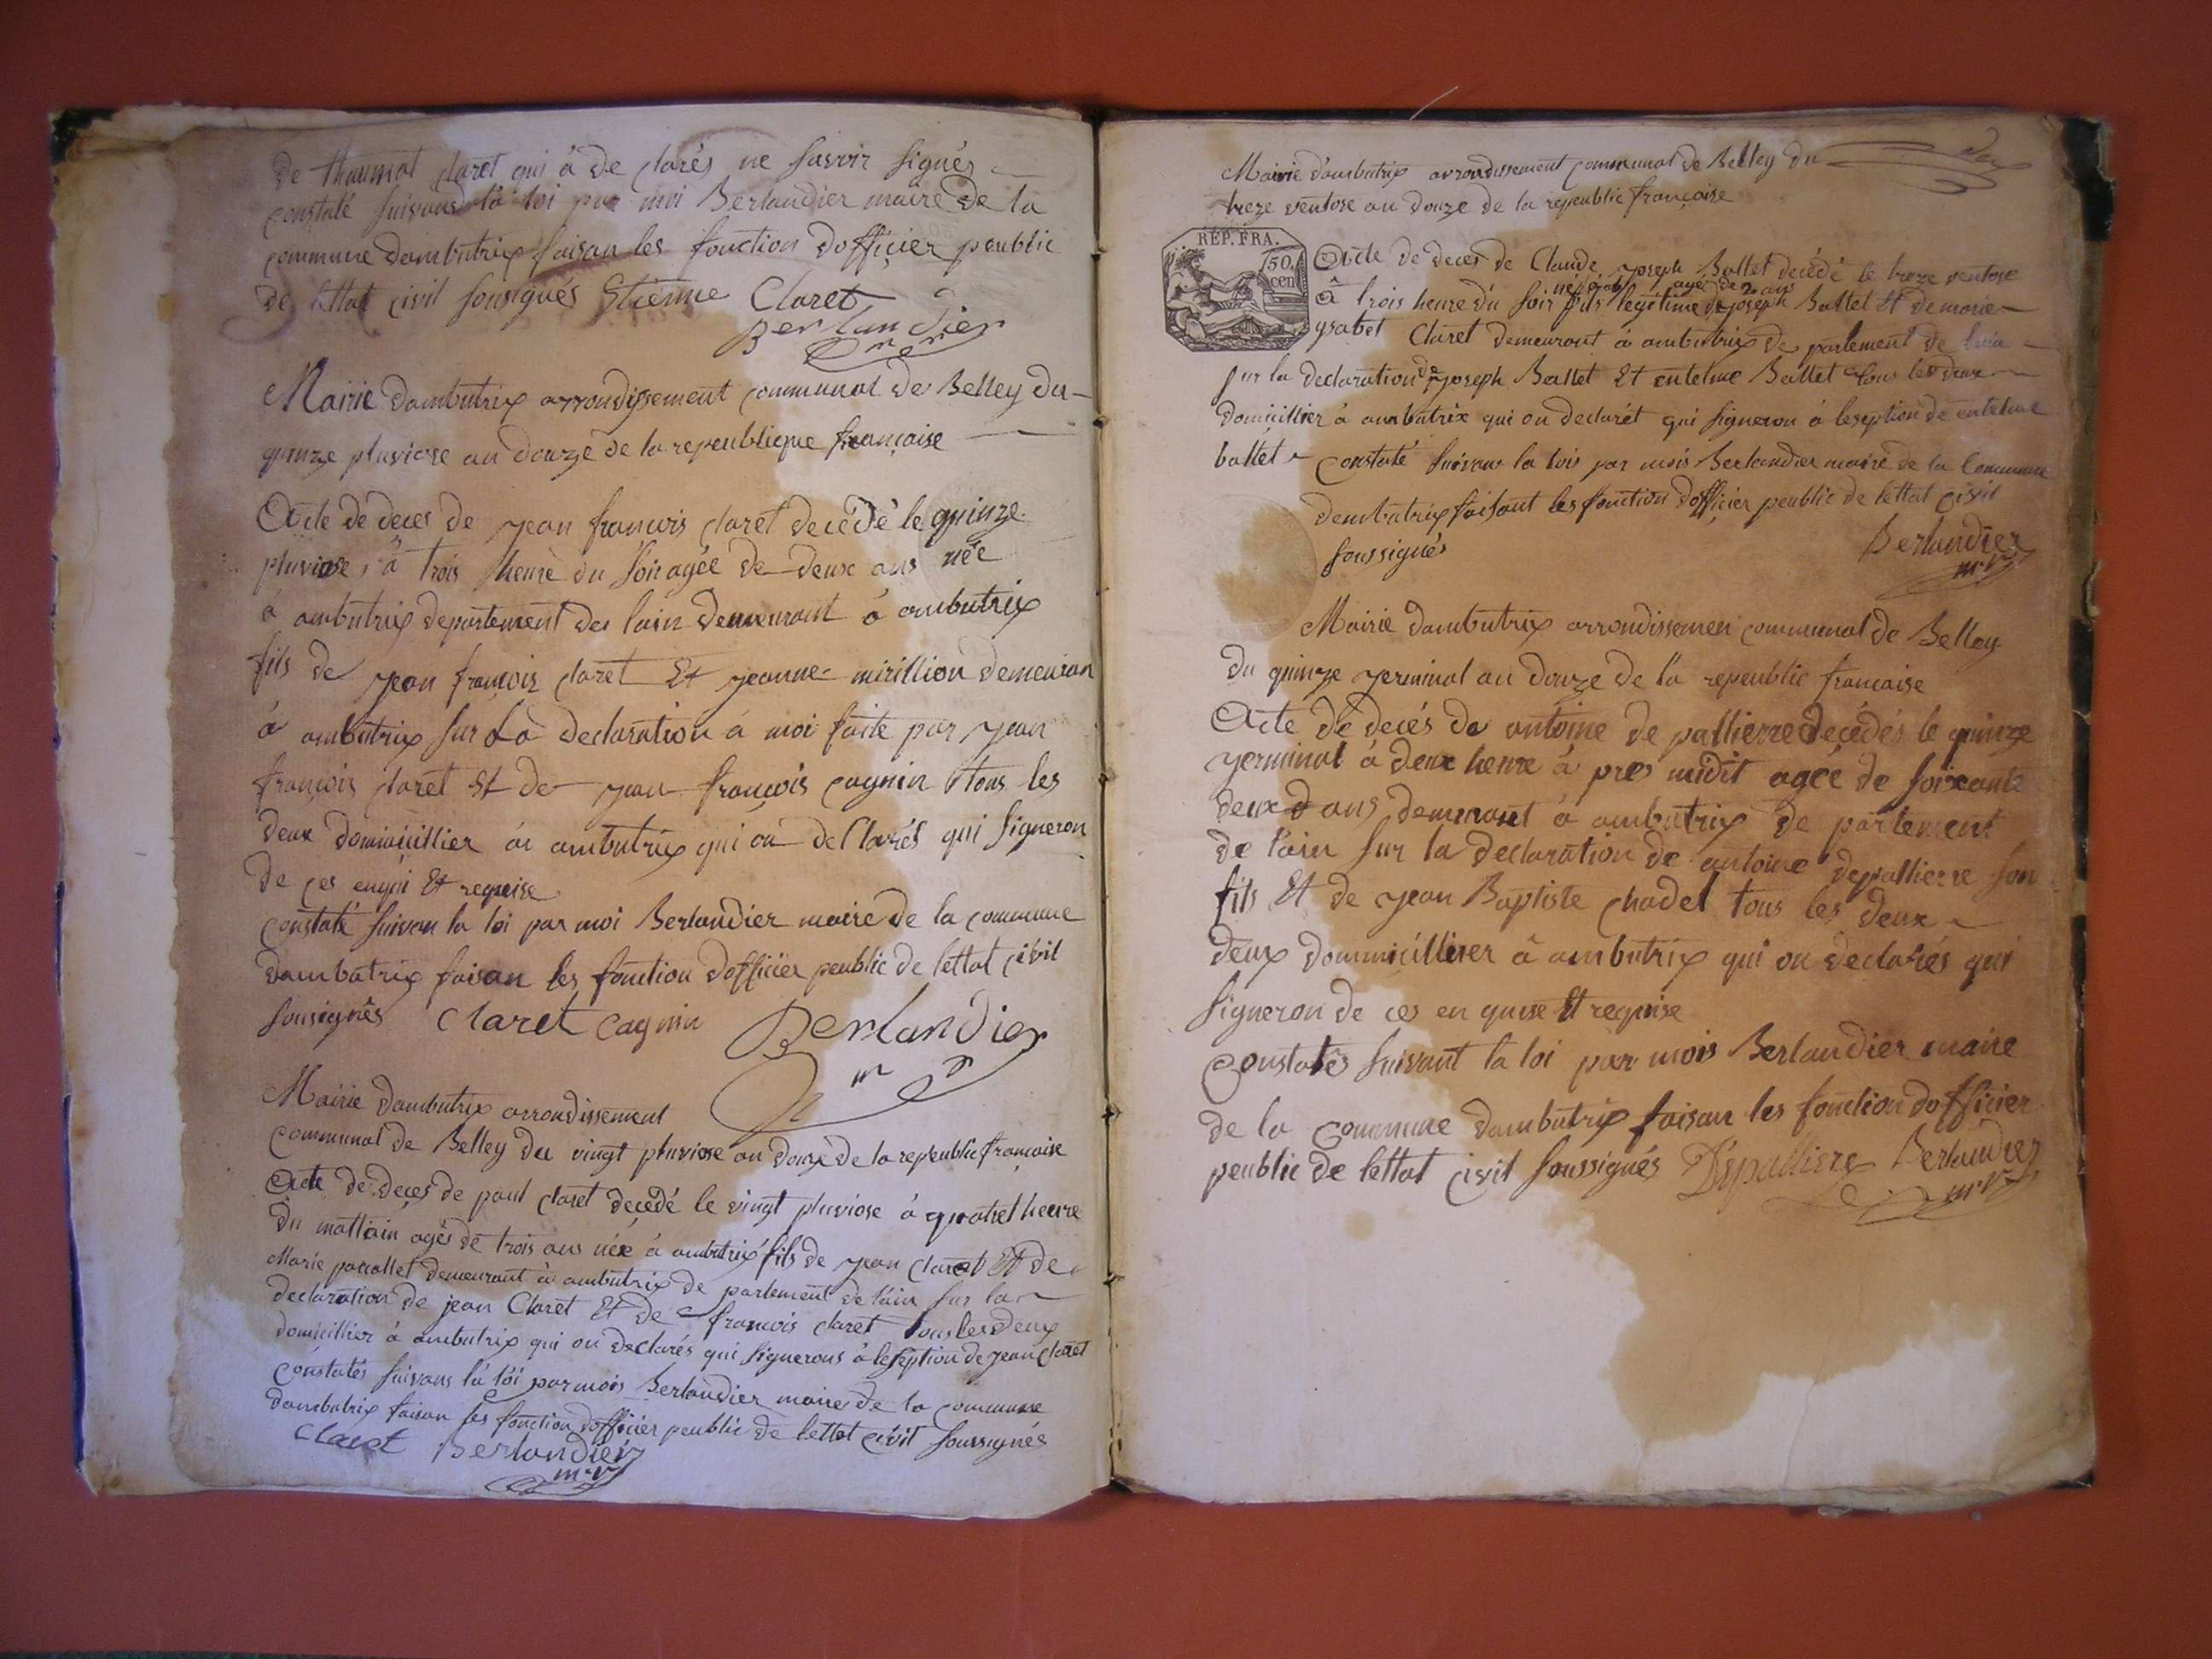 de thaumat claret qui à de clarés ne savoir signés
constaté suivant la loi par moi Berlandier maire de la
commune dambutrix faisan les fonction dofficier peublic
de lettat civil sousignés Etienne Claret
Berlandier
Mairie dambutrix arrondissement communal de Belley du
quinze pluviose an douze de la repeublique française
Acte de deces de jean francois claret decédé le quinze
pluviose, à trois heure du soir agée de deux ans née
à ambutrix departement de lain demeurant à ambutrix
fils de jean françois claret Et jeanne mirillion demeuran
à ambutrix sur La declaration a moi faite par jean
françois claret Et de jean françois cagnin tous les
deux domicillier à ambutrix qui on declarés qui signeron
de ces enqui Et requise
constaté suivan la loi par moi Berlandier maire de la commune
dambutrix faisan les fonction dofficier peublic de lettat civil
sousignés Claret cagnin Berlandier
Mairie dambutrix arrondissement
communal de Belley du vingt pluviose an douze de la repeublic françoise
Acte de deces de paul claret decédé le vingt pluviose à quatret heure
du mattain agés de trois ans née à ambutrix fils de jean claret Et de
Marie parallet demeurant à ambutrix de partement de lain sur la
declaration de jean Claret Et de francois claret tous les deux
domicillier à ambutrix qui on declarés qui signerons à leseption de jean claret
Constatés suivans la loi par mois Berlandier maire de la commune
dambutrix faisan les fonction dofficier peublic de lettat civil soussignés
Claret Berlandier
mre
Mairie d'ambutrix arrondissement communal de Belley du
treze ventose an douze de la repeublic françoise
REP. FRA.
50. cen
Acte de deces de Claude joseph Ballet decédé le treze ventose
agé de 2 ans
à trois heure du soir fils legitime de joseph Ballet Et de marie
ysabet Claret demeurant à ambutrix de partement de lain
sur la declaration de joseph Ballet Et entelme Ballet tous les deux
domicillier à ambutrix qui on declarét qui signeron à leseption de entelme
ballet constaté suivan la lois par mois Berlandier maire de la Commune
dembutrix faisant les fonction dofficier peublic de lettat civil
soussignés Berlandier
mre
Mairie dambutrix arrondissemen communal de Belley
du quinze germinal an douze de la repeublic francaise
Acte de decés de antoine de pallierre decédés le quinze
germinal à deux heure à pres midit agée de soixante
deux ans demeurant à ambutrix de partement
de l'ain sur la declaration de antoine depallierre son
fils Et de jean Baptiste chadel tous les deux
deux dommicillier à ambutrix qui on declarés qui
signeron de ces en quise Et requise
Constatés suivant la loi par mois Berlandier maire
de la Commune dambutrix faisan les fonction dofficier
peublic de lettat civil soussignés Depalliere Berlandier
mre